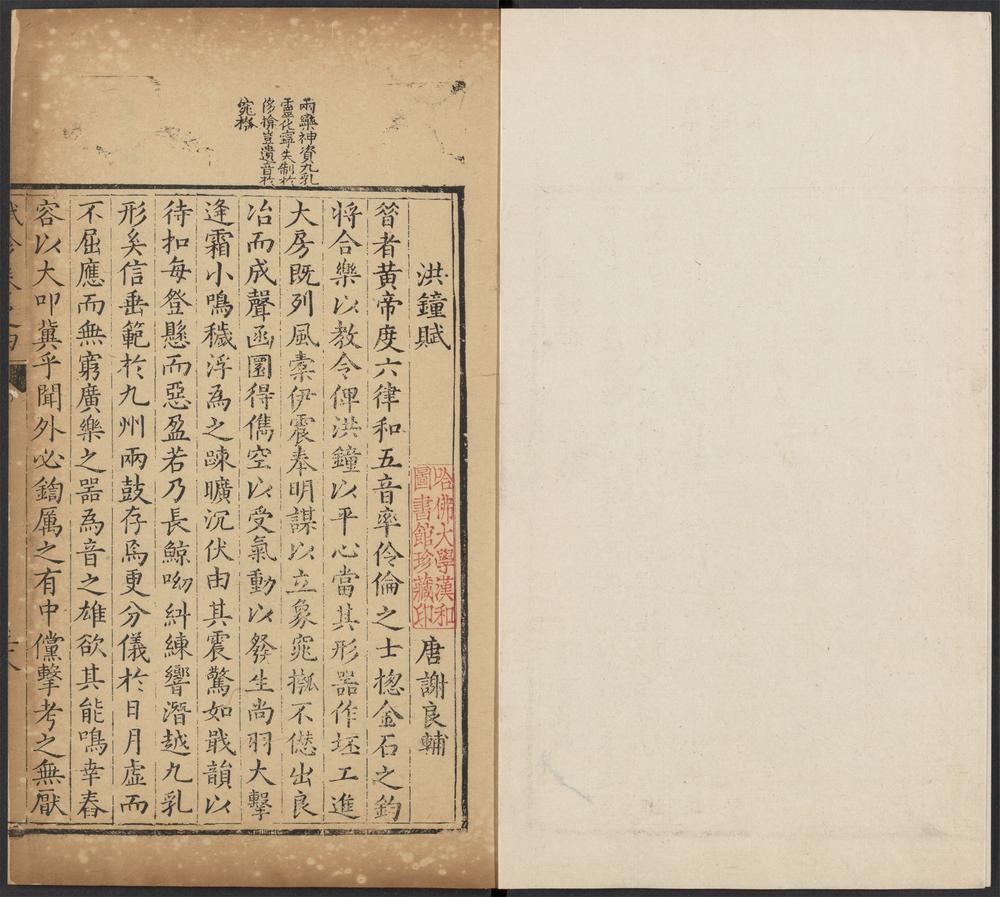 兩欒神資九乳
靈化寧失制於
侈揜豈遺音於
窕槬
洪鐘賦
唐謝良輔
哈佛大學漢和
圖書館珍藏印
昔者黃帝度六律和五音率伶倫之士摠金石之鈞
將合樂以教令俾洪鐘以平心當其形器作坯工進
大房既列風橐伊震奉明謀以立象窕摦不僁出良
冶而成聲函圜得儁空以受氣動以發生尚羽大擊
逢霜小鳴穢浮為之踈曠沉伏由其震驚如戢韻以
待扣每登懸而惡盈若乃長鯨呦糾練響潛越九乳
形矣信垂範於九州兩鼓存焉更分儀於日月虛而
不屈應而無窮廣樂之器為音之雄欲其能鳴幸舂
容以大叩冀乎聞外必鍧厲之有中儻擊考之無厭